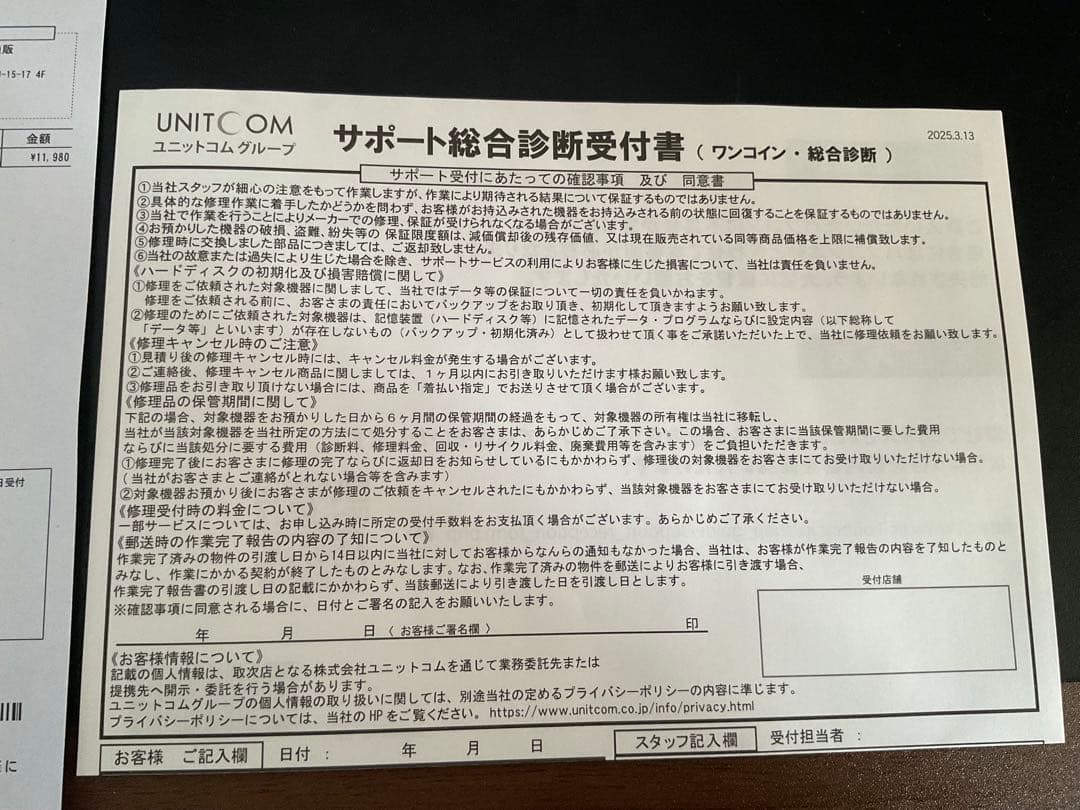 販
-15-17 4F
金額
¥11,980
日受付
に
UNITCOM
ユニットコム グループ
サポート総合診断受付書 ( ワンコイン・総合診断 )
2025.3.13
サポート受付にあたっての確認事項 及び 同意書
①当社スタッフが細心の注意をもって作業しますが、作業により期待される結果について保証するものではありません。
②具体的な修理作業に着手したかどうかを問わず、お客様がお持込みされた機器をお持込みされる前の状態に回復することを保証するものではありません。
③当社で作業を行うことによりメーカーでの修理、保証が受けられなくなる場合がございます。
④お預かりした機器の破損、盗難、紛失等の 保証限度額は、減価償却後の残存価値、又は現在販売されている同等商品価格を上限に補償致します。
⑤修理時に交換しました部品につきましては、ご返却致しません。
⑥当社の故意または過失により生じた場合を除き、サポートサービスの利用によりお客様に生じた損害について、当社は責任を負いません。
《ハードディスクの初期化及び損害賠償に関して》
①修理をご依頼された対象機器に関しまして、当社ではデータ等の保証について一切の責任を負いかねます。
修理をご依頼される前に、お客さまの責任においてバックアップをお取り頂き、初期化して頂きますようお願い致します。
②修理のためにご依頼された対象機器は、記憶装置（ハードディスク等）に記憶されたデータ・プログラムならびに設定内容（以下総称して
「データ等」といいます）が存在しないもの（バックアップ・初期化済み）として扱わせて頂く事をご承諾いただいた上で、当社に修理依頼をお願い致します。
《修理キャンセル時のご注意》
①見積り後の修理キャンセル時には、キャンセル料金が発生する場合がございます。
②ご連絡後、修理キャンセル商品に関しましては、1ヶ月以内にお引き取りいただけます様お願い致します。
③修理品をお引き取り頂けない場合には、商品を「着払い指定」でお送りさせて頂く場合がございます。
《修理品の保管期間に関して》
下記の場合、対象機器をお預かりした日から6ヶ月間の保管期間の経過をもって、対象機器の所有権は当社に移転し、
当社が当該対象機器を当社所定の方法にて処分することをお客さまは、あらかじめご了承下さい。この場合、お客さまに当該保管期間に要した費用
ならびに当該処分に要する費用（診断料、修理料金、回収・リサイクル料金、廃棄費用等を含みます）をご負担いただきます。
①修理完了後にお客さまに修理の完了ならびに返却日をお知らせしているにもかかわらず、修理後の対象機器をお客さまにてお受け取りいただけない場合。
（当社がお客さまとご連絡がとれない場合等を含みます）
②対象機器お預かり後にお客さまが修理のご依頼をキャンセルされたにもかかわらず、当該対象機器をお客さまにてお受け取りいただけない場合。
《修理受付時の料金について》
一部サービスについては、お申し込み時に所定の受付手数料をお支払頂く場合がございます。あらかじめご了承ください。
《郵送時の作業完了報告の内容の了知について》
作業完了済みの物件の引渡し日から14日以内に当社に対してお客様からなんらの通知もなかった場合、当社は、お客様が作業完了報告の内容を了知したものと
みなし、作業にかかる契約が終了したものとみなします。なお、作業完了済みの物件を郵送によりお客様に引き渡す場合、
作業完了報告書の引渡し日の記載にかかわらず、当該郵送により引き渡した日を引渡し日とします。
※確認事項に同意される場合に、日付とご署名の記入をお願いいたします。
受付店舗
年 月 日（お客様ご署名欄） 印
《お客様情報について》
記載の個人情報は、取次店となる株式会社ユニットコムを通じて業務委託先または
提携先へ開示・委託を行う場合があります。
ユニットコムグループの個人情報の取り扱いに関しては、別途当社の定めるプライバシーポリシーの内容に準じます。
プライバシーポリシーについては、当社のHPをご覧ください。https://www.unitcom.co.jp/info/privacy.html
お客様 ご記入欄 日付： 年 月 日 スタッフ記入欄 受付担当者：